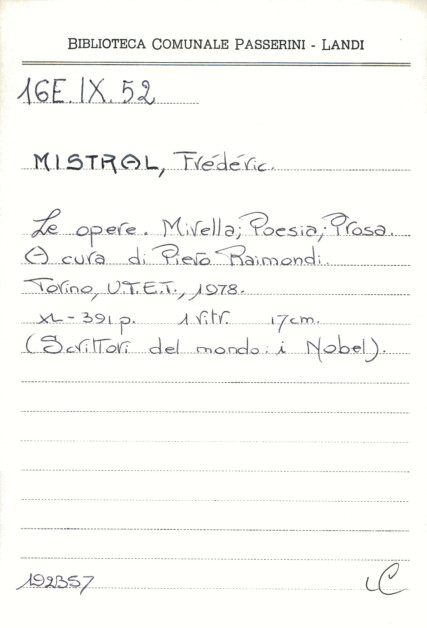 BIBLIOTECA COMUNALE PASSERINI - LANDI
16E.IX.52
MISTRAL, Frédéric.
Le opere. Mirella; Poesia; Prosa.
A cura di Piero Raimondi.
Torino, U.T.E.T., 1978.
XL-391 p. 1 ritr. 17cm.
(Scrittori del mondo: i Nobel).
192357